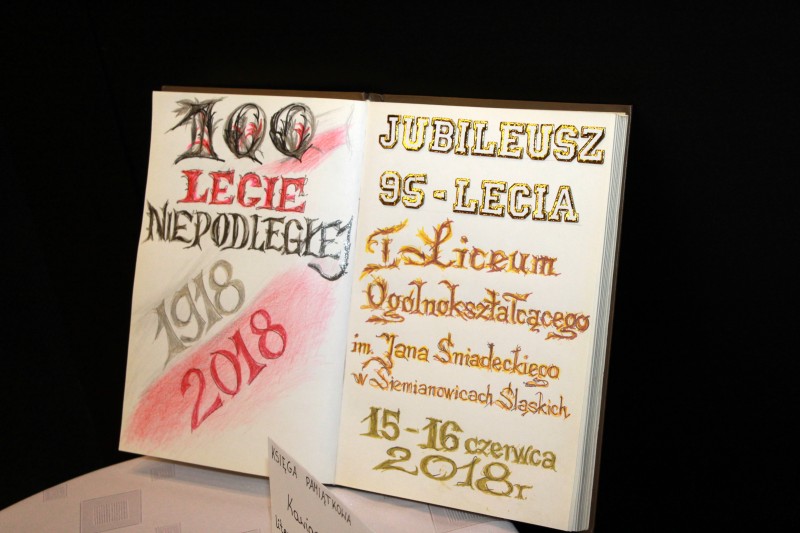 100
LECIE
NIEPODLEGŁEJ
1918
2018
JUBILEUSZ
95-LECIA
I Liceum
Ogólnokształcącego
im. Jana Śniadeckiego
w Siemianowicach Śląskich
15-16 czerwca
2018r
KSIĘGA PAMIĄTKOWA